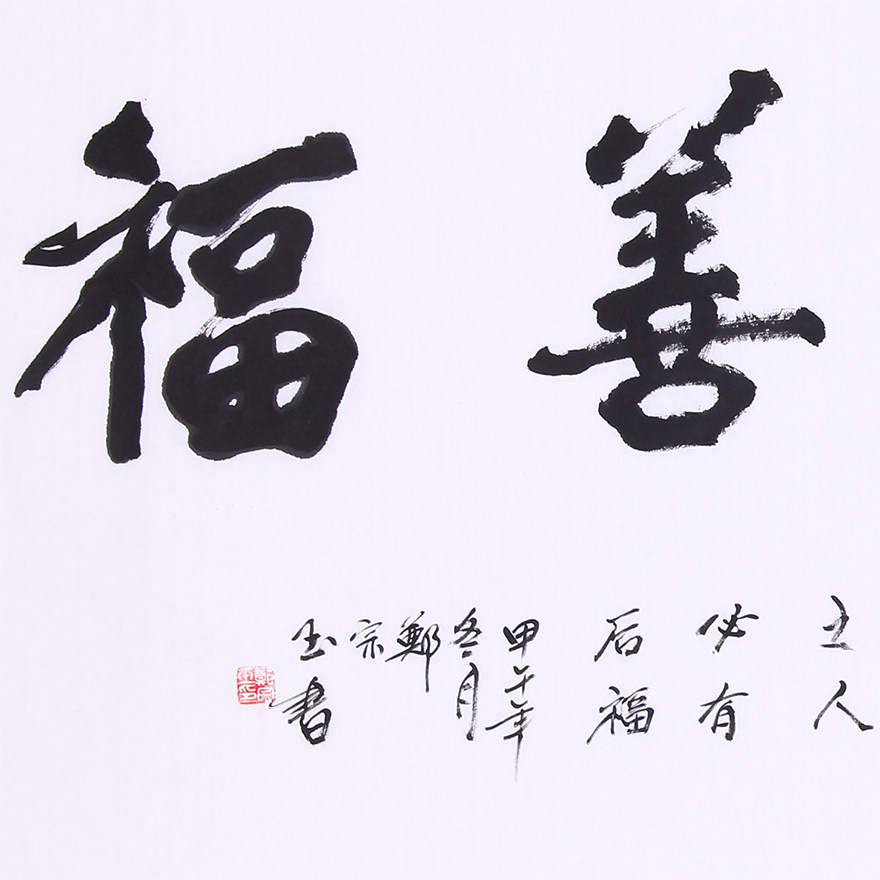 善福
之人
必有
后福
甲午年
冬月
鄭
宗
玉書